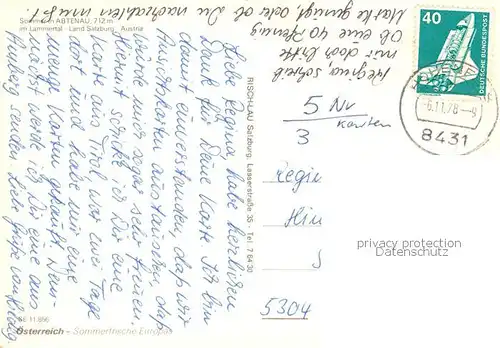 Sommer in ABTENAU, 712 m
im Lammertal - Land Salzburg, Austria
Regina, schreib
mir doch bitte
ob eine 40 Pfennig
Marke genügt oder ob Du nachzahlen mußt!
Liebe Regina, habe herzlichen
Dank für Deine Karte. Ich bin
damit einverstanden, daß wir
Ansichtskarten austauschen, das
würde mich sogar sehr freuen.
Hiermit schicke ich Dir eine
Karte von Tirol, war zwei Tage
dort und habe mir eine
Menge Karten gekauft. Dem-
nächst werde ich Dir eine aus
senden. Liebe Grüße von
RISCH-LAU, Salzburg, Lasserstraße 35 Tel. 7 64 30
40
DEUTSCHE BUNDESPOST
-6.11.78-9
8431
5 Nv
3 Karten
Regie
Hin
S
5304
privacy protection
DATENSCHUTZ
SE 11.866
Österreich - Sommerfrische Europas